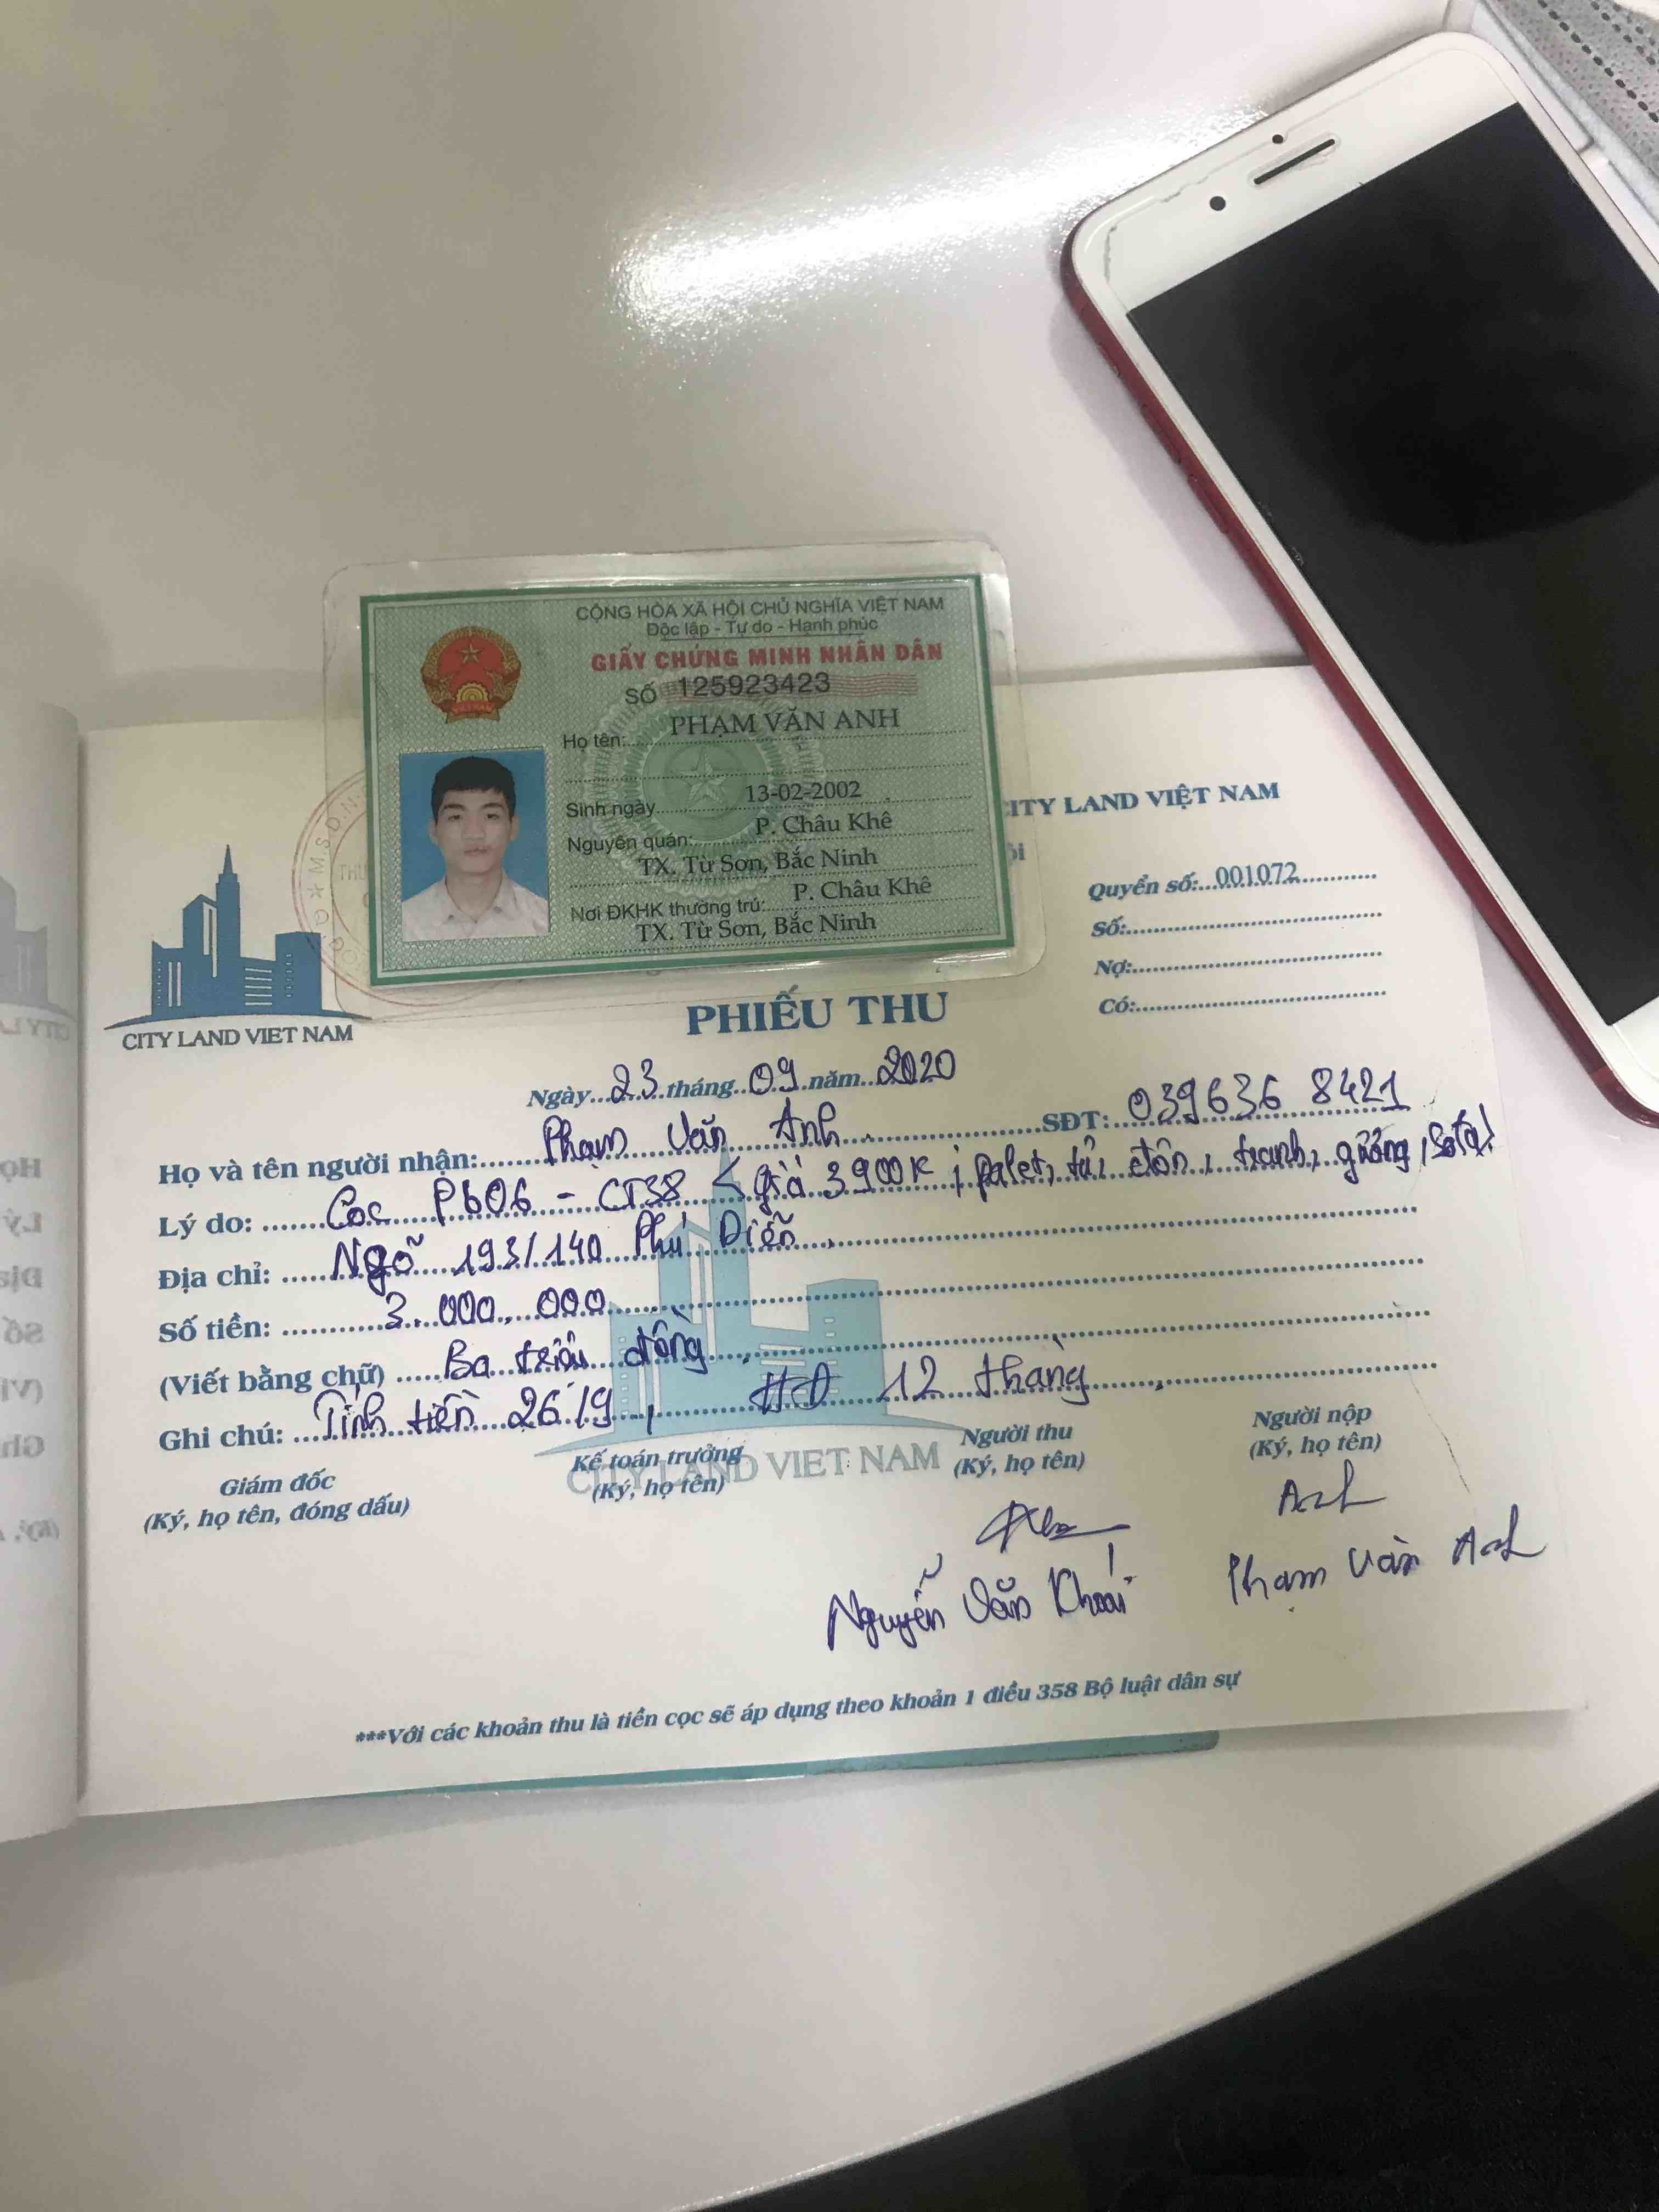 CỘNG HÒA XÃ HỘI CHỦ NGHĨA VIỆT NAM
Độc lập - Tự do - Hạnh phúc
GIẤY CHỨNG MINH NHÂN DÂN
SỐ 125923423
Họ tên: PHẠM VĂN ANH
Sinh ngày 13-02-2002
Nguyên quán: P. Châu Khê
TX. Từ Sơn, Bắc Ninh
Nơi ĐKHK thường trú: P. Châu Khê
TX. Từ Sơn, Bắc Ninh
CITY LAND VIỆT NAM
Quyển số: 001072
Số:
Nợ:
Có:
CITY LAND VIET NAM
PHIẾU THU
Ngày 23 tháng 09 năm 2020
Họ và tên người nhận: Phạm Văn Anh SĐT: 039636 8421
Lý do: Cọc P606 - CT38 < giá 3900K ; palet, tủ, đôn, tranh, gương, sofa!
Địa chỉ: Ngõ 193/140 Phú Diễn
Số tiền: 3.000.000
(Viết bằng chữ) Ba triệu đồng
Ghi chú: Tính tiền 26/9, HĐ 12 tháng
CITY LAND VIET NAM
Giám đốc
(Ký, họ tên, đóng dấu)
Kế toán trưởng
(Ký, họ tên)
Người thu
(Ký, họ tên)
Nguyễn Văn
Người nộp
(Ký, họ tên)
Anh
Phạm Văn Anh
***Với các khoản thu là tiền cọc sẽ áp dụng theo khoản 1 điều 358 Bộ luật dân sự